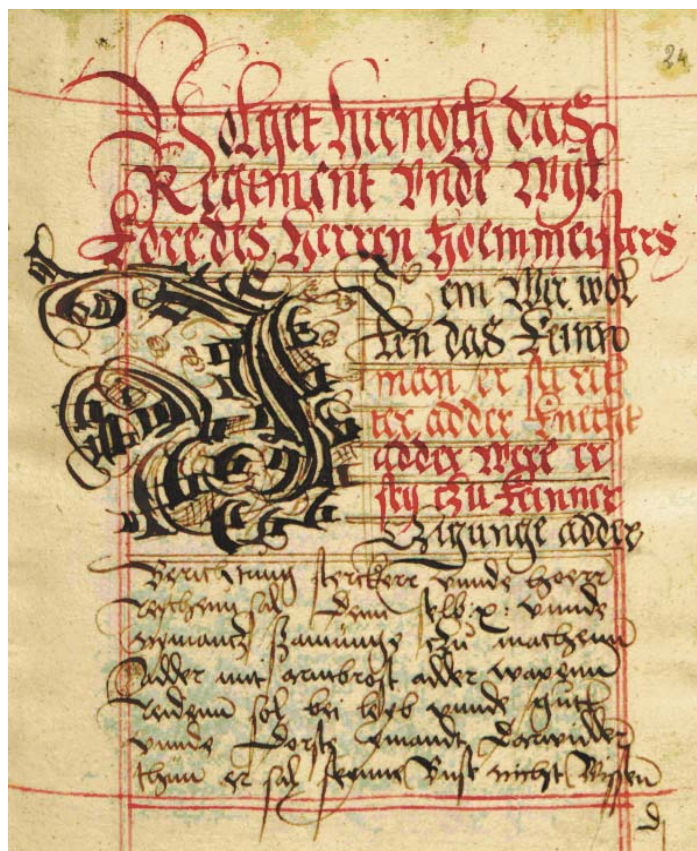 24
Volget hirnoch das
Regiment vnde Wyl
kore des herren hoemmeisters
Item Wir wol
len das keinn
man er sey rit
ter adder knecht
adder were er
sey czu keinner
Czigunge adder
Berichtung stercker vnnde hoerr
reythenn sal denn selb :x: vnnde
nymantz samunge czu machenn
adder mit armbrost adder wapenn
reidenn sol bei leyb vnnde gutt
vnnde dorste ymandt dorwidder
thun er sal seynne Bust nicht Wissen